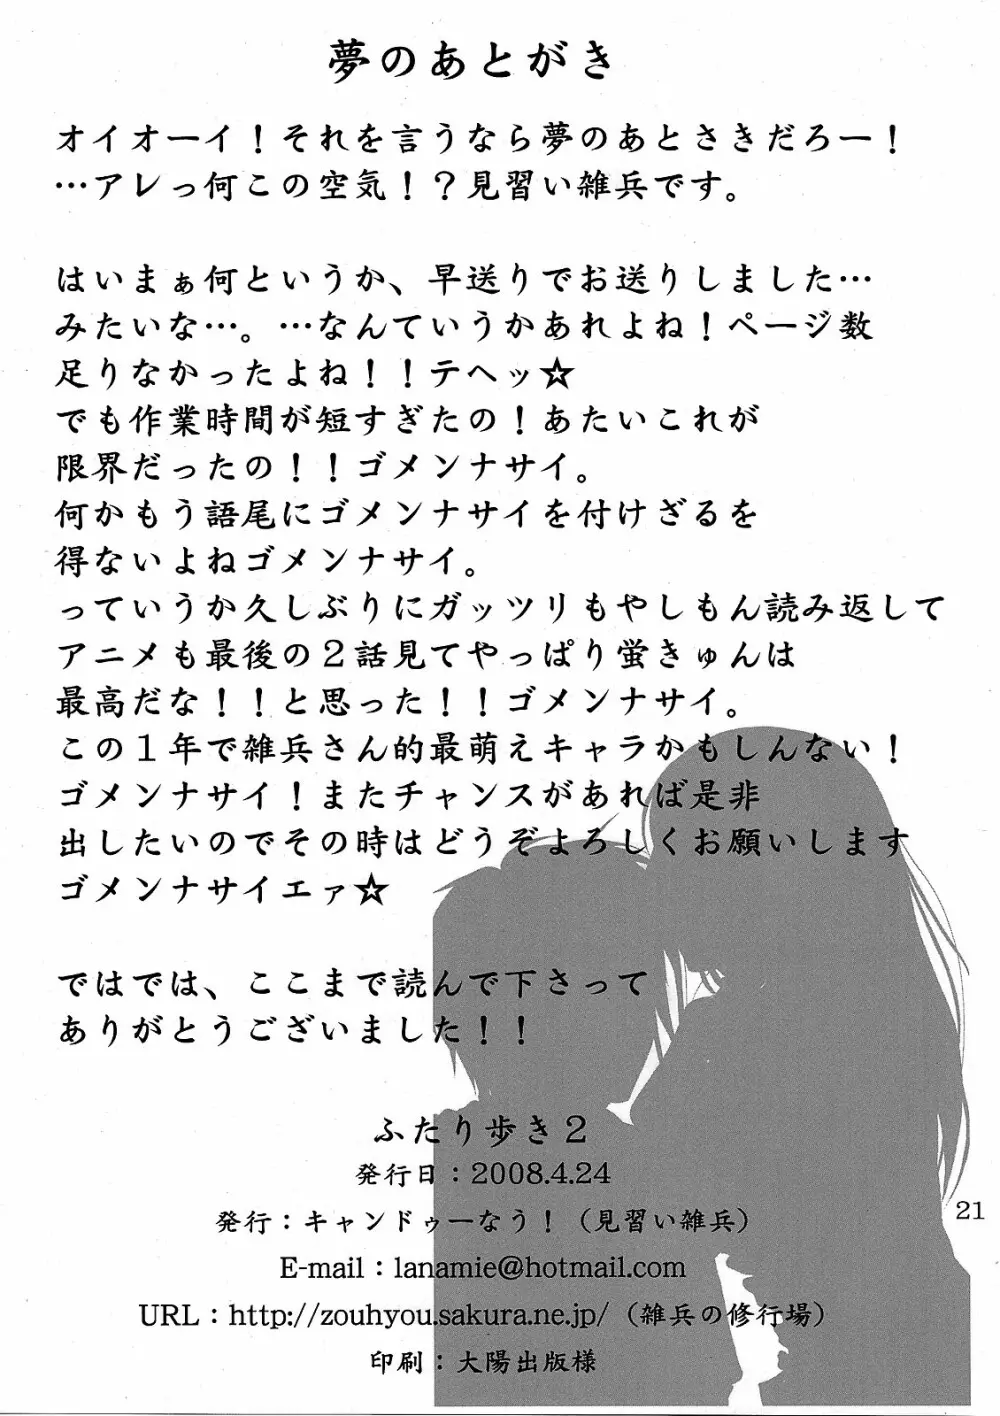 夢のあとがき
オイオーイ！それを言うなら夢のあとさきだろー！
…アレっ何この空気！？見習い雑兵です。
はいまぁ何というか、早送りでお送りしました…
みたいな…。…なんていうかあれよね！ページ数
足りなかったよね！！テヘッ☆
でも作業時間が短すぎたの！あたいこれが
限界だったの！！ゴメンナサイ。
何かもう語尾にゴメンナサイを付けざるを
得ないよねゴメンナサイ。
っていうか久しぶりにガッツリもやしもん読み返して
アニメも最後の２話見てやっぱり蛍きゅんは
最高だな！！と思った！！ゴメンナサイ。
この１年で雑兵さん的最萌えキャラかもしんない！
ゴメンナサイ！またチャンスがあれば是非
出したいのでその時はどうぞよろしくお願いします
ゴメンナサイエァ☆
ではでは、ここまで読んで下さって
ありがとうございました！！
ふたり歩き２
発行日：2008.4.24
発行：キャンドゥーなう！（見習い雑兵）
21
E-mail：lanamie@hotmail.com
URL：http://zouhyou.sakura.ne.jp/（雑兵の修行場）
印刷：大陽出版様